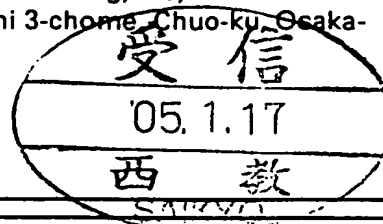 ni 3-chome, Chuo-ku, Osaka-
受信
'05. 1. 17
西教